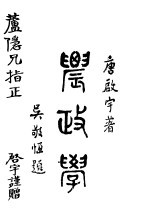 唐啟宇著
農政學
吳敬恆題
蘆隱兄指正
啓宇謹贈